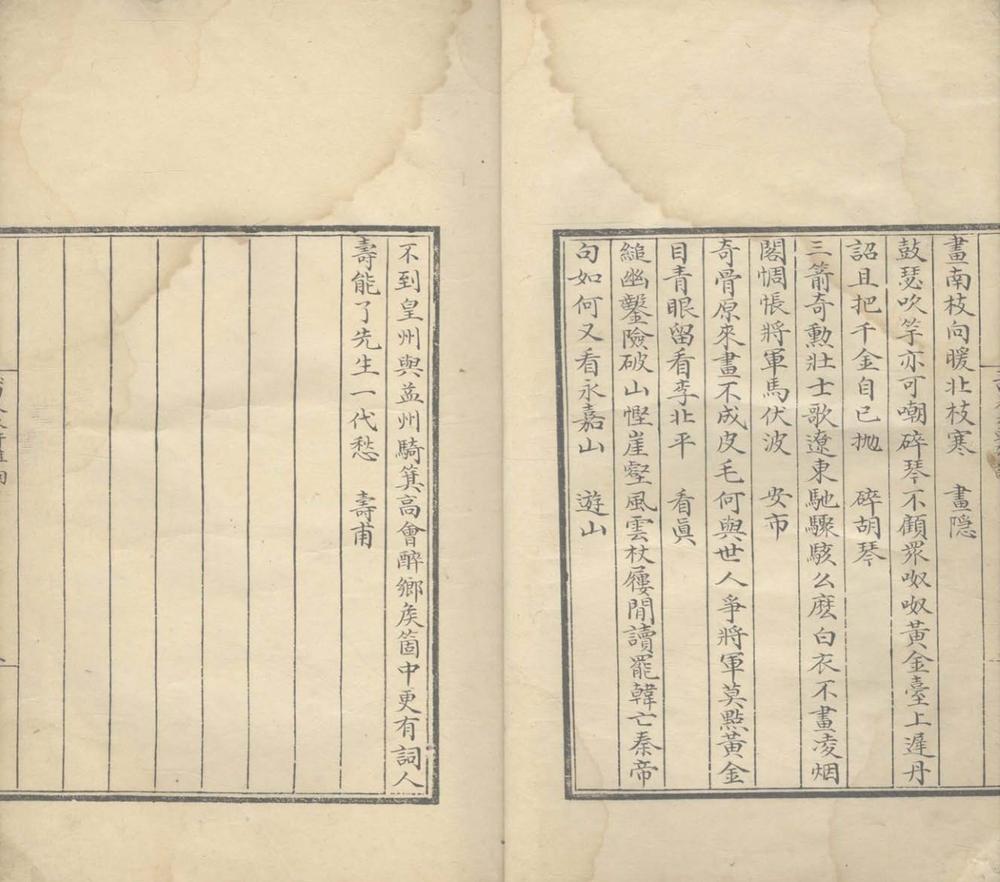 畫南枝向暖北枝寒　畫隱
鼓瑟吹竽亦可嘲碎琴不顧衆呶呶黃金臺上遲丹
詔且把千金自已拋　碎胡琴
三箭奇勳壯士歌遼東馳驟駭么麽白衣不畫凌烟
閣惆悵將軍馬伏波　安市
奇骨原來畫不成皮毛何與世人爭將軍莫點黃金
目青眼留看李北平　看眞
縋幽鑿險破山慳崖壑風雲杖屨閒讀罷韓亡秦帝
句如何又看永嘉山　遊山
不到皇州與益州騎箕高會醉鄉矦箇中更有詞人
壽能了先生一代愁　壽甫